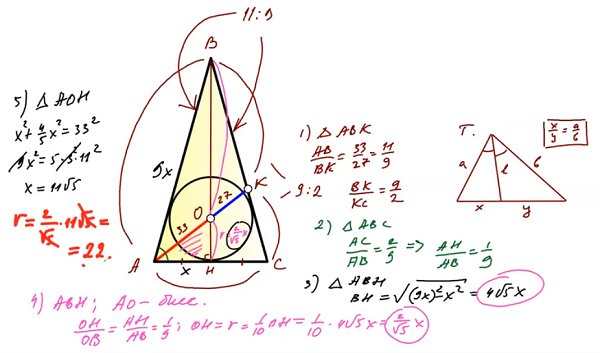 11:9
B
5) △ AOH
x² + 4/5 x² = 33²
9x² = 5·5·11²
x = 11√5
r = 2/√5 · 11√5 =
= 22.
9x
O
27
K
33
r
2/√5 x
A
x
H
C
9:2
1) △ ABK
AB/BK = 33/27 = 11/9
BK/KC = 9/2
2) △ ABC
AC/AB = 2/9 => AH/AB = 1/9
3) △ ABH
BH = √((9x)² - x²) = 4√5 x
T.
x/y = a/b
a
l
b
x
y
4) ABH; AO – бис.
OH/OB = AH/AB = 1/9; OH = r = 1/10 BH = 1/10 · 4√5 x = 2/√5 x